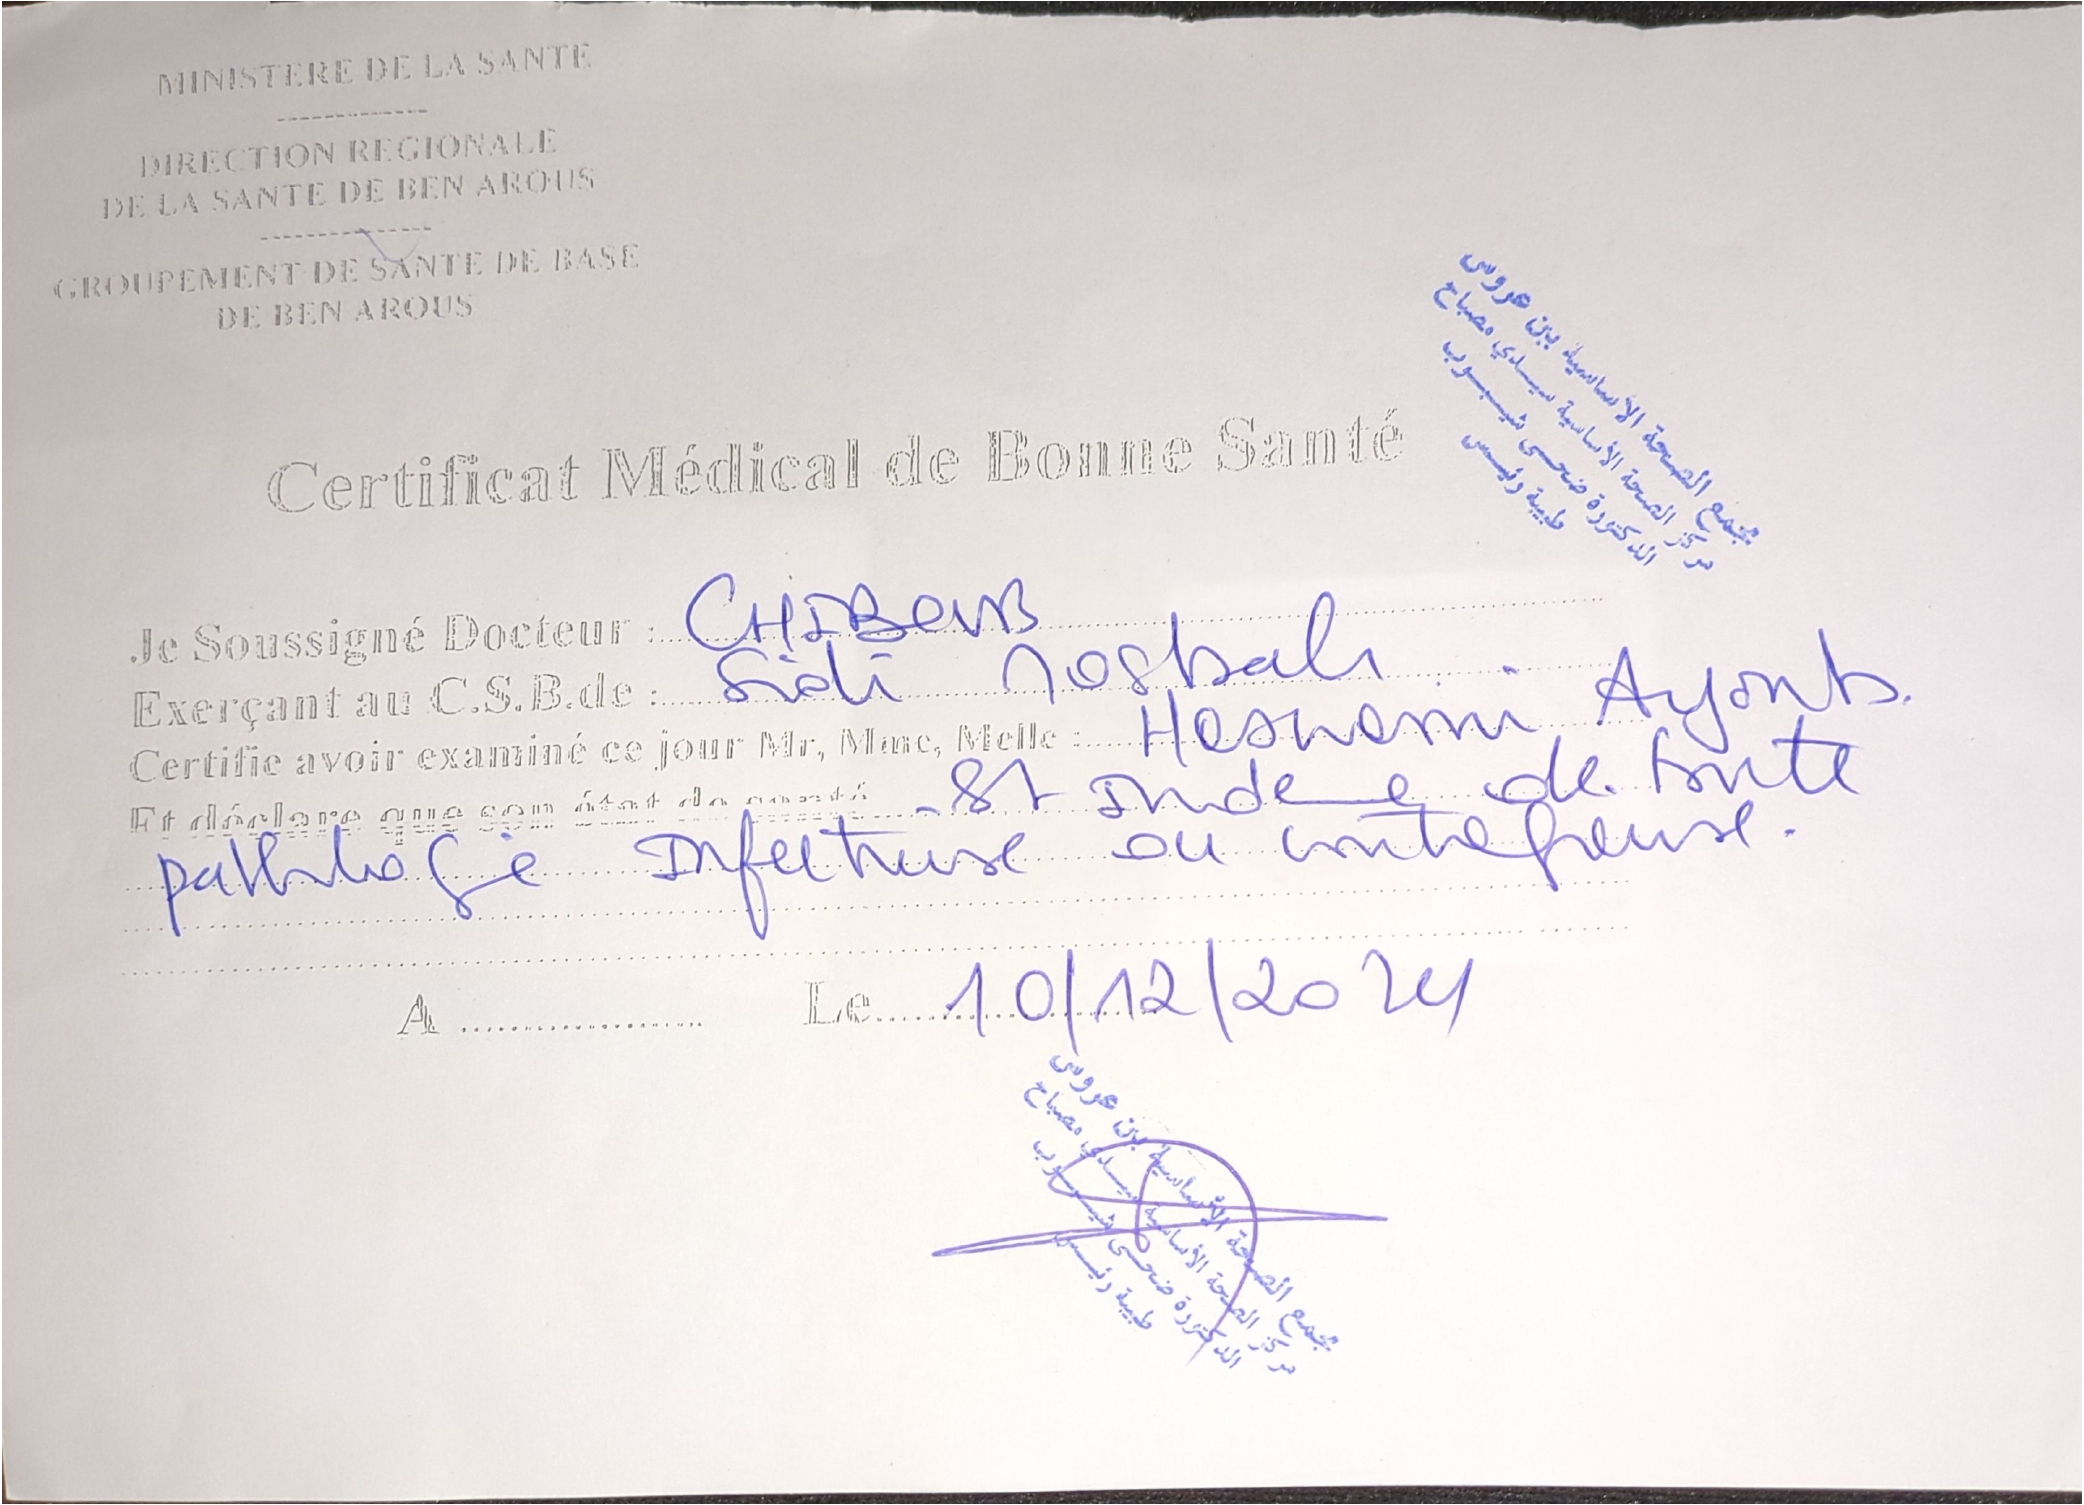 MINISTERE DE LA SANTE
-------------
DIRECTION REGIONALE
DE LA SANTE DE BEN AROUS
---------------
GROUPEMENT DE SANTE DE BASE
DE BEN AROUS
مجمع الصحة الأساسية ببن عروس
مركز الصحة الأساسية سيدي مصباح
الدكتورة ضحى شيبوب
طبيبة رئيس
Certificat Médical de Bonne Santé
Je Soussigné Docteur : CHIBOUB
Exerçant au C.S.B.de : Sidi Mosbah
Certifie avoir examiné ce jour Mr, Mme, Melle : Hasnaoui Ayoub.
Et déclare que son état de santé est Indemne de toute
pathologie Infectieuse ou contagieuse.
A .................... Le 10/12/2024
مجمع الصحة الأساسية ببن عروس
مركز الصحة الأساسية سيدي مصباح
الدكتورة ضحى شيبوب
طبيبة رئيس